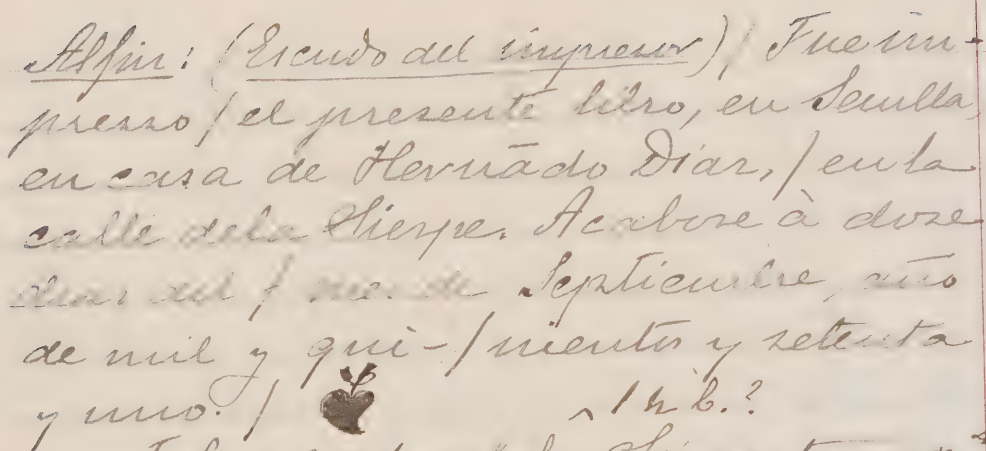 Alfin: (Escudo del impresor) / Fue im-
presso / el presente libro, en Seuilla,
en casa de Hernãdo Diaz, / en la
calle dela Sierpe. Acabose à doze
dias del / mes de Septiembre, año
de mil y qui-/nientos y setenta
y uno. /